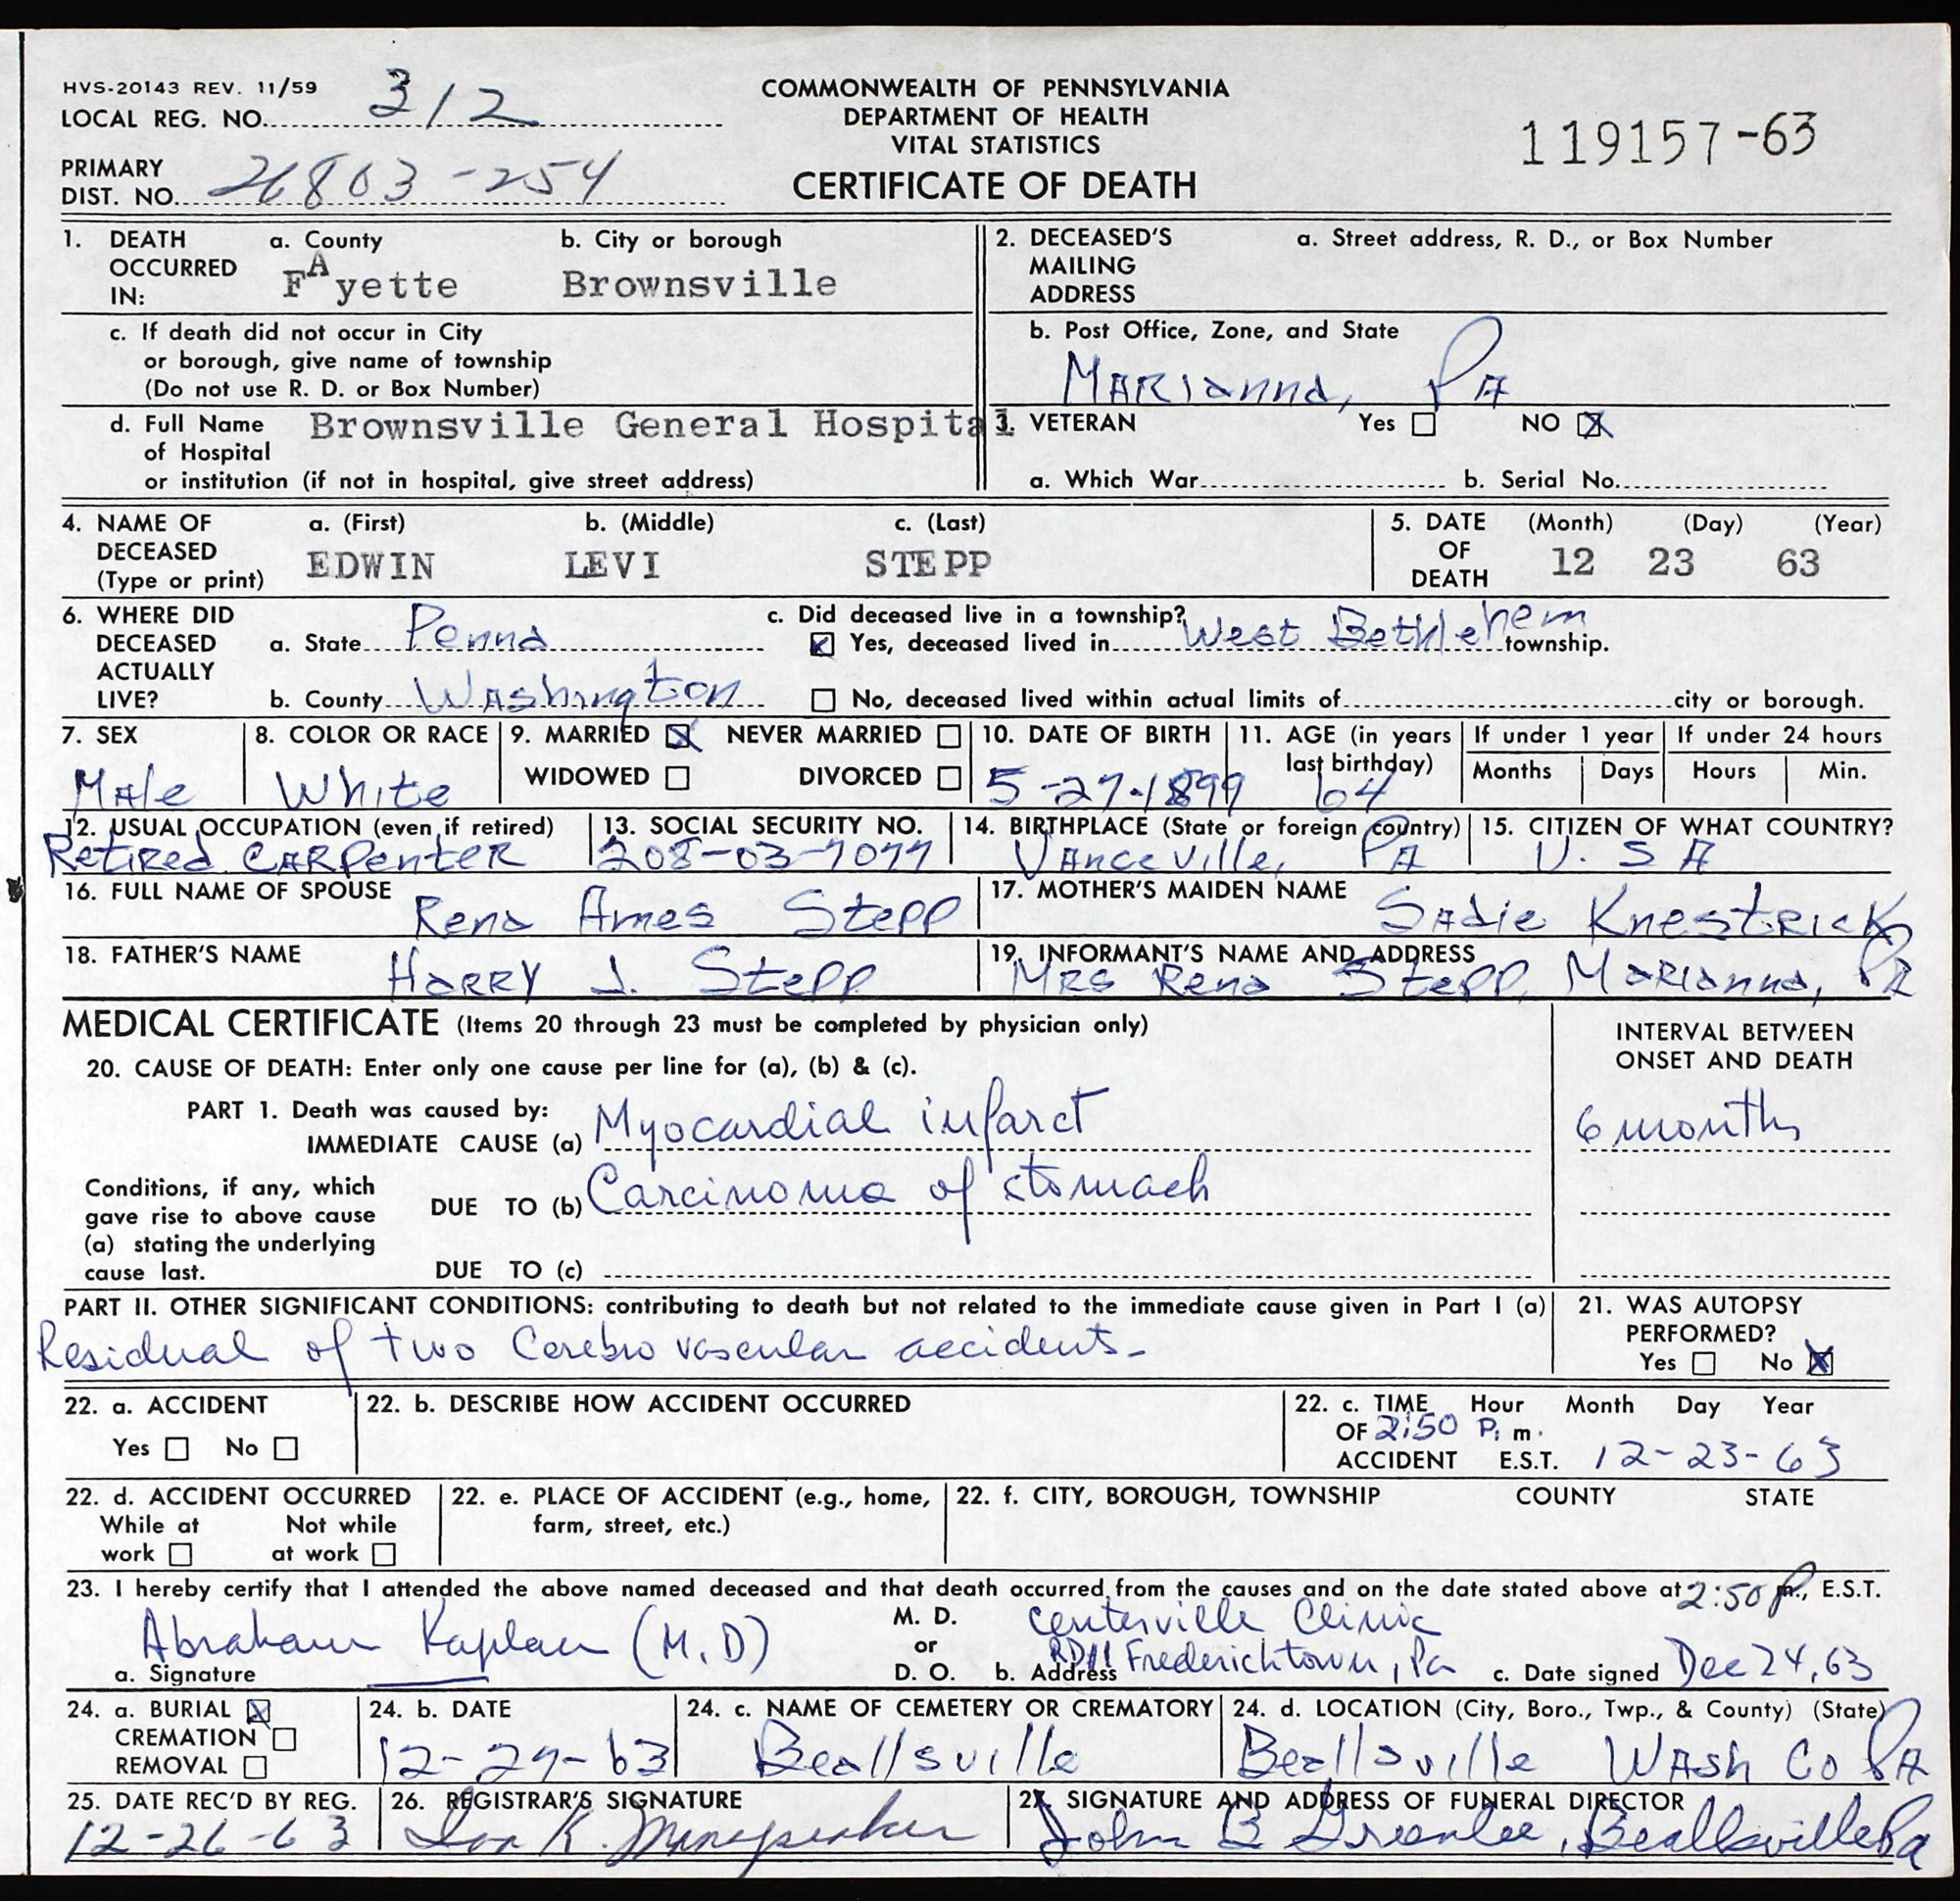 HVS-20143 REV. 11/59
LOCAL REG. NO. 312
PRIMARY
DIST. NO. 26803-254
COMMONWEALTH OF PENNSYLVANIA
DEPARTMENT OF HEALTH
VITAL STATISTICS
CERTIFICATE OF DEATH
119157-63
1. DEATH OCCURRED IN: a. County b. City or borough
FAyette Brownsville
c. If death did not occur in City
or borough, give name of township
(Do not use R. D. or Box Number)
d. Full Name Brownsville General Hospital
of Hospital
or institution (if not in hospital, give street address)
2. DECEASED'S MAILING ADDRESS a. Street address, R. D., or Box Number
b. Post Office, Zone, and State
Marianna, PA
3. VETERAN Yes NO X
a. Which War b. Serial No.
4. NAME OF DECEASED (Type or print) a. (First) b. (Middle) c. (Last)
EDWIN LEVI STEPP
5. DATE OF DEATH (Month) (Day) (Year)
12 23 63
6. WHERE DID DECEASED ACTUALLY LIVE?
a. State Penna
b. County Washington
c. Did deceased live in a township?
Yes, deceased lived in West Bethlehem township.
No, deceased lived within actual limits of city or borough.
7. SEX
Male
8. COLOR OR RACE
White
9. MARRIED X NEVER MARRIED
WIDOWED DIVORCED
10. DATE OF BIRTH
5-27-1899
11. AGE (in years last birthday)
64
If under 1 year
Months Days
If under 24 hours
Hours Min.
12. USUAL OCCUPATION (even if retired)
Retired Carpenter
13. SOCIAL SECURITY NO.
14. BIRTHPLACE (State or foreign country)
Vanceville, PA
15. CITIZEN OF WHAT COUNTRY?
U. S A
16. FULL NAME OF SPOUSE Rena Ames Stepp
17. MOTHER'S MAIDEN NAME Sadie Knestrick
18. FATHER'S NAME Harry J. Stepp
19. INFORMANT'S NAME AND ADDRESS
Mrs Rena Stepp, Marianna, Pa
MEDICAL CERTIFICATE (Items 20 through 23 must be completed by physician only)
INTERVAL BETWEEN
ONSET AND DEATH
20. CAUSE OF DEATH: Enter only one cause per line for (a), (b) & (c).
PART 1. Death was caused by:
IMMEDIATE CAUSE (a) Myocardial infarct 6 months
Conditions, if any, which
gave rise to above cause
(a) stating the underlying
cause last.
DUE TO (b) Carcinoma of stomach
DUE TO (c)
PART II. OTHER SIGNIFICANT CONDITIONS: contributing to death but not related to the immediate cause given in Part I (a)
Residual of two Cerebro vascular accidents-
21. WAS AUTOPSY
PERFORMED?
Yes No X
22. a. ACCIDENT
Yes No
22. b. DESCRIBE HOW ACCIDENT OCCURRED
22. c. TIME Hour Month Day Year
OF 2:50 P. m.
ACCIDENT E.S.T. 12-23-63
22. d. ACCIDENT OCCURRED
While at work Not while at work
22. e. PLACE OF ACCIDENT (e.g., home,
farm, street, etc.)
22. f. CITY, BOROUGH, TOWNSHIP COUNTY STATE
23. I hereby certify that I attended the above named deceased and that death occurred from the causes and on the date stated above at 2:50 P m., E.S.T.
Abraham Kaplan (M.D)
a. Signature
M. D.
or
D. O.
Centerville Clinic
b. Address RD#1 Fredericktown, Pa
c. Date signed Dec 24, 63
24. a. BURIAL X
CREMATION
REMOVAL
24. b. DATE
24. c. NAME OF CEMETERY OR CREMATORY
Beallsville
24. d. LOCATION (City, Boro., Twp., & County) (State)
Beallsville Wash Co PA
25. DATE REC'D BY REG.
12-26-63
26. REGISTRAR'S SIGNATURE
27. SIGNATURE AND ADDRESS OF FUNERAL DIRECTOR
John B Greenlee, Beallsville Pa